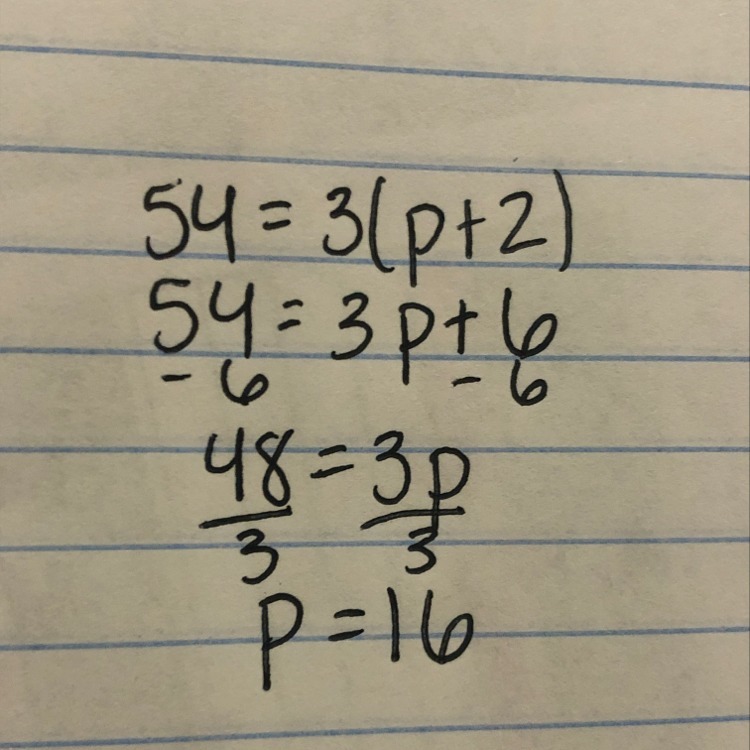 54 = 3(p+2)
54 = 3p+6
- 6 - 6
48 = 3p
3 3
p = 16